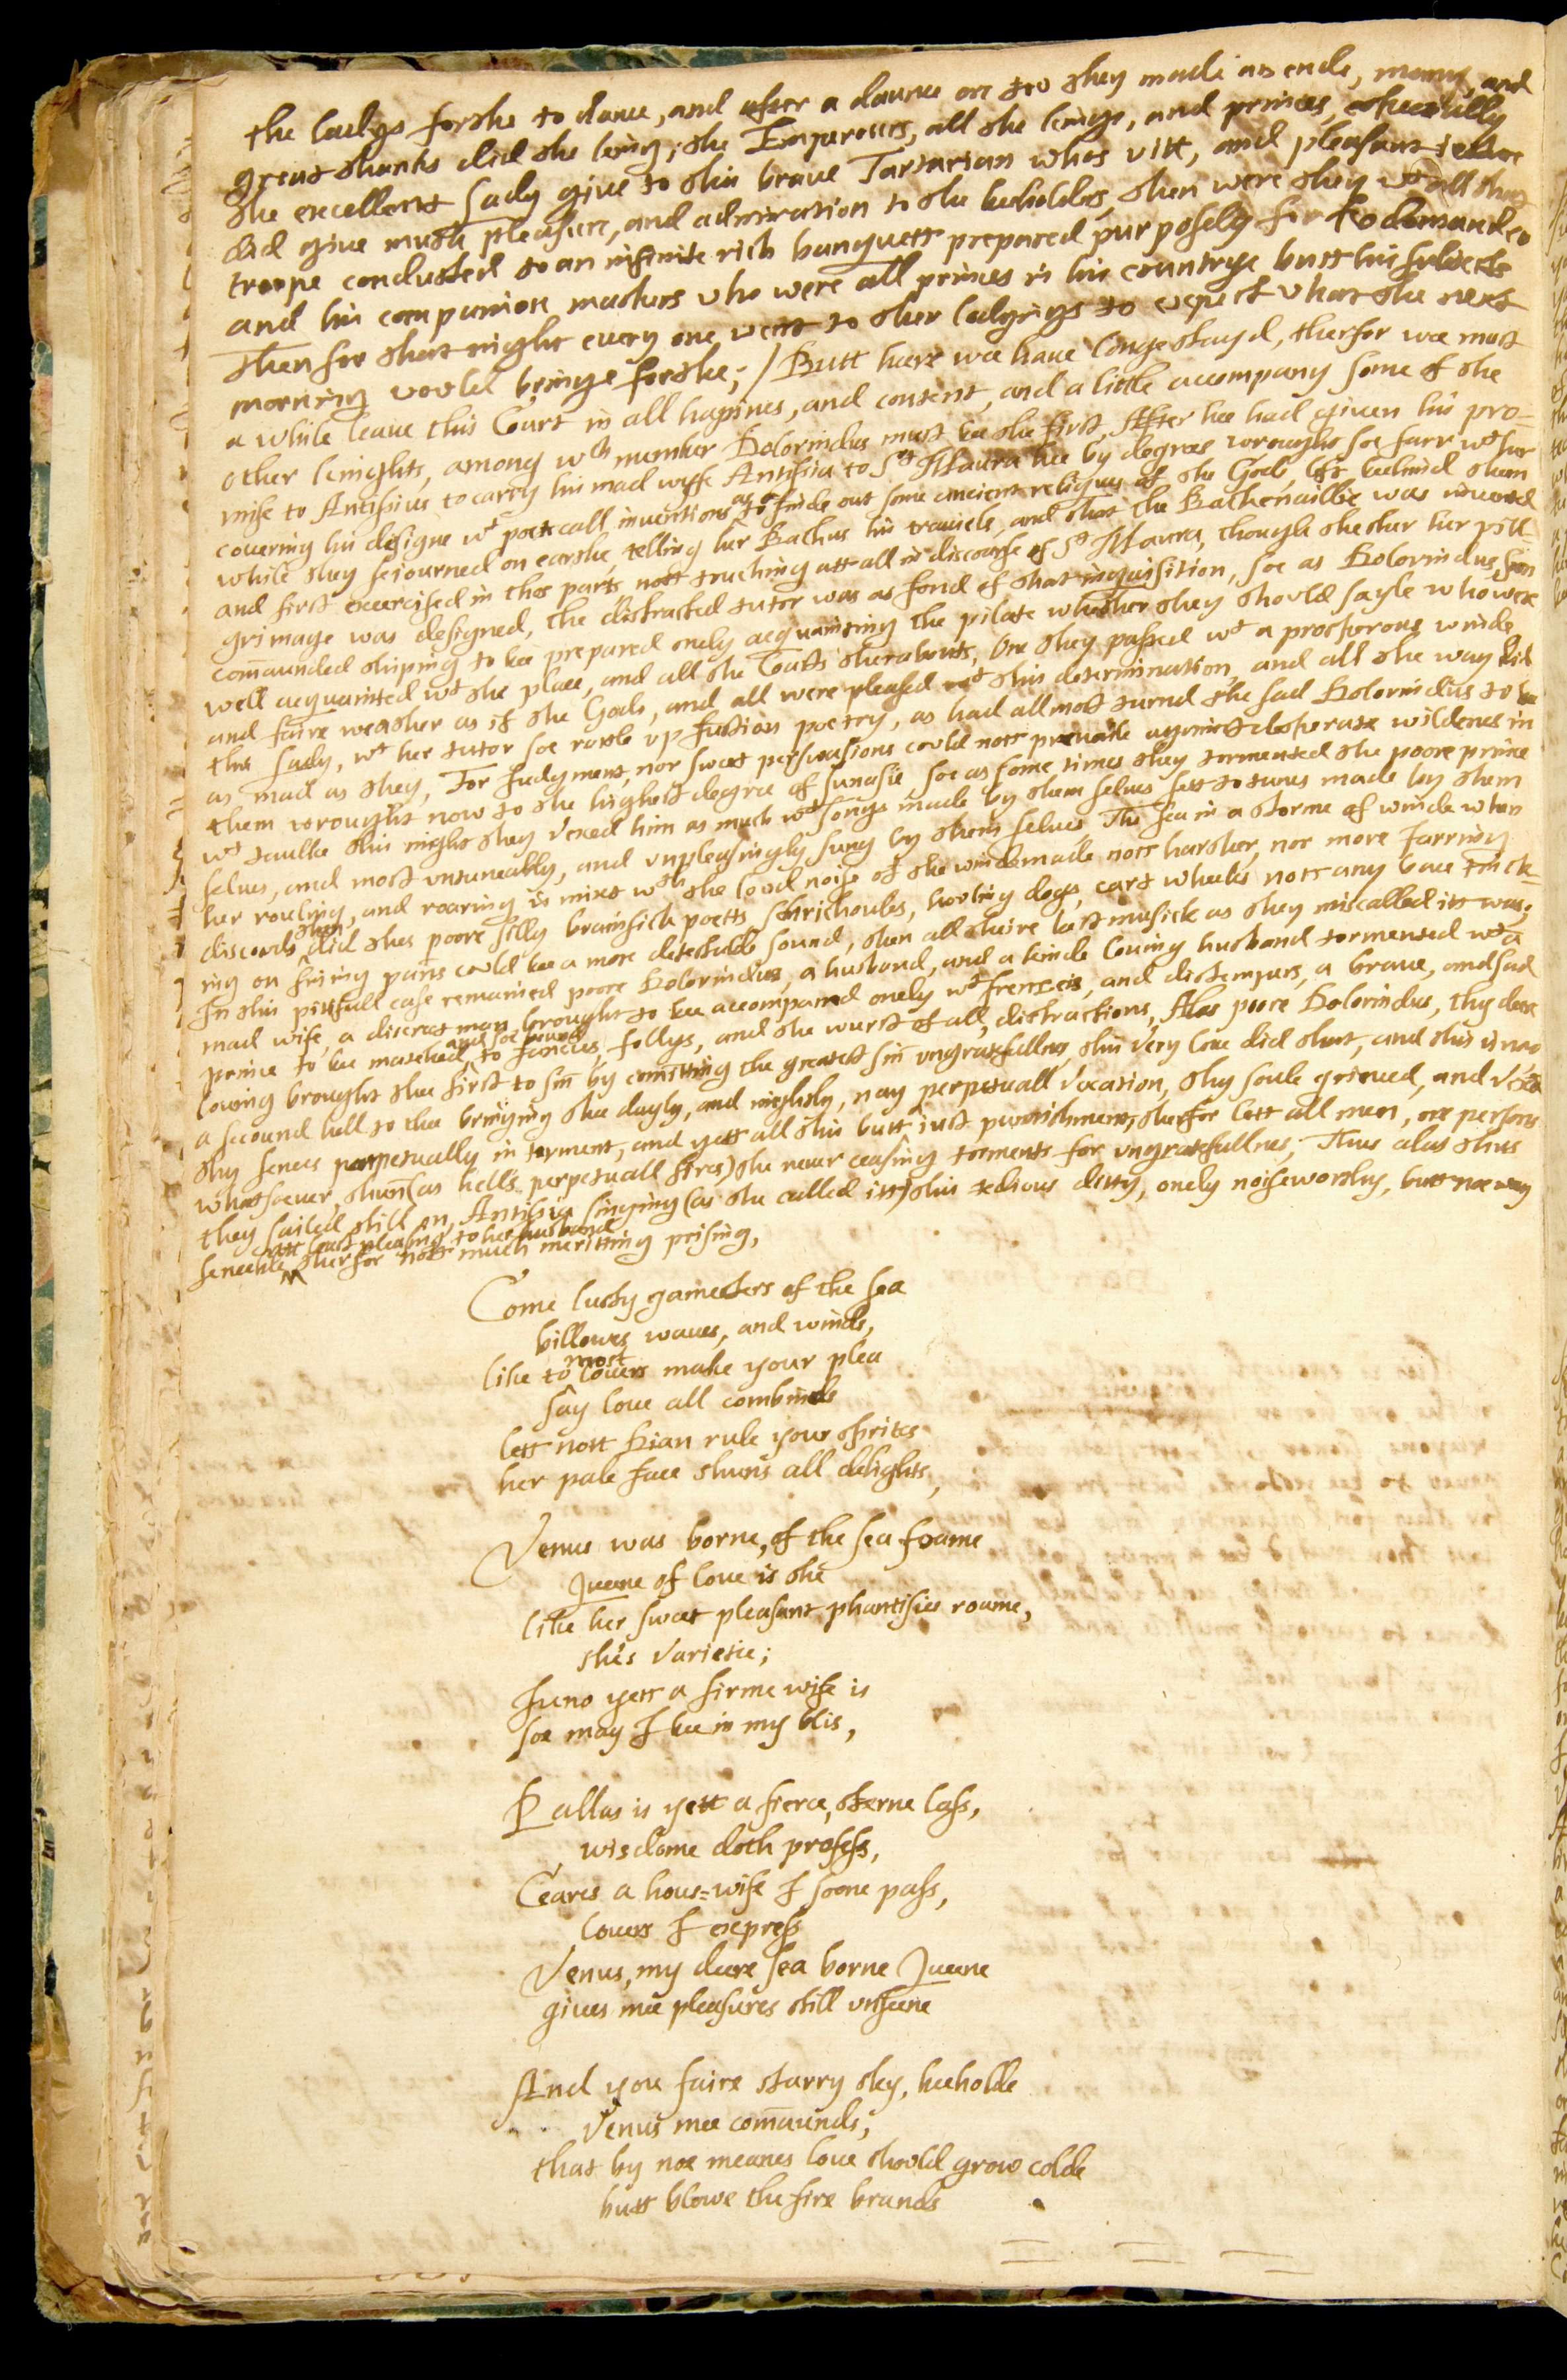 the ladys forthe to daunce, and after a daunce or two they made an ende, many, and
great thanks did the king, the Emperours, all the kings, and princes, especially
the excellent Lady give to this brave Tartarian whos witt, and pleasant
did give much pleasure, and admiration to the beeholders, then were they wt all ther
troope conducted to an infinite rich banquett prepared purposely for Rodomandro
and his companion maskers who were all princes in his countrye butt his subjects
Then for that night every one went to ther lodgings to expect what the next
morning would bringe forthe; / Butt heere wee have longe stayd, therfor wee must
a while leave this Court in all hapines, and content, and a little accompany some of the
other knights, among wch number Dolorindus must bee the first, After hee had given his pro-
mise to Antissius to carry his mad wyfe Antissia to St Maura hee by degrees wrought soe farr wt her
covering his designe wt poeticall inventions as to finde out some ancient reliques of the Gods, left beehind them
while they sejourned on earthe, telling her Bachus his travells, and that the Bathenallie was invented
and first exercised in thos parts nott touching att all in discourse of St Maura, though thether her pill-
grimage was designed, the distracted tutor was as fond of that inquisition, soe as Dolorindus soon
comaunded shiping to bee prepared onely acquainting the pilate whether they should sayle who were
well acquainted wt the place, and all the Coasts therabouts, On they passed wt a prosperous winde
and faire weather as if the Gods, and all were pleased wt this determination, and all the way did
this Lady, wt her tutor soe rowle up fustion poetry, as had allmost turnd the sad Dolorindus to bee
as mad as they, For Judgment, nor sweet perswasions could nott prevaile against desperate wildenes in
them wrought now to the highest degree of Lunasie soe as some times they tormented the poore prince
wt taulke this night they vexed him as much wt songs made by them selves sett to tunes made by them
selves, and most untuneably, and unpleasingly sung by them selves The sea in a storme of winde when
her rouling, and roaring is mixt wth the loud noise of the winde made nott harsher, nor more Jarring
discords then did thes poore silly brainsick poetts, schrichoules, howling dogs, cart wheeles nott any bace tinck-
ing on friing panns could bee a more detestable sound, then all theire last musick as they miscalled itt was;
In this pittifull case remained poore Dolorindus, a husband, and a kinde loving husband tormented wt a
mad wife, a discreet man brought to bee accompanied onely wt frenzeis, and distempers, a brave, and sad
prince to bee matched, and soe bound to fancies, follys, and the wurst of all, distractions, Alas poore Dolorindus, thy deere
loving brought thee first to sinn by comitting the greatest sin ungratefullnes, this very love did that, and this is now
a second hell to thee bringing thee dayly, and nightly, nay perpetuall vexation, thy soule grieved, and vexed
thy sences perpetually in torment, and yett all this butt just punnishment, therfor lett all men, or persons
whatsoever, shunn (as hells perpetuall fires) the never ceasing torments for ungratefullnes; Thus alas thus
they sailed still on, Antissia singing (as she called itt) this tedious ditty, onely noiseworthy, butt noe way
senceable att least pleasing to her husband therfor nott much meritting prising,
Come lusty gamesters of the sea
billowes waves, and winds,
like to most lovers make your plea
say love all combinds
lett nott Dian rule your sprites
her pale face shuns all delights,
Venus was borne, of the sea foame
Queene of love is she
like her sweet pleasant phantisies roame,
she's varietie;
Juno yett a firme wife is
soe may I bee in my blis,
Pallas is yett a fierce, sterne lass,
wisdome doth profess,
Ceares a hous=wife I soone pass,
lovers I express
Venus, my deere sea borne Queene
gives mee pleasures still unseene
And you faire starry sky, beeholde
Venus mee comaunds;
that by noe meanes love should grow colde
butt blowe the fire brands